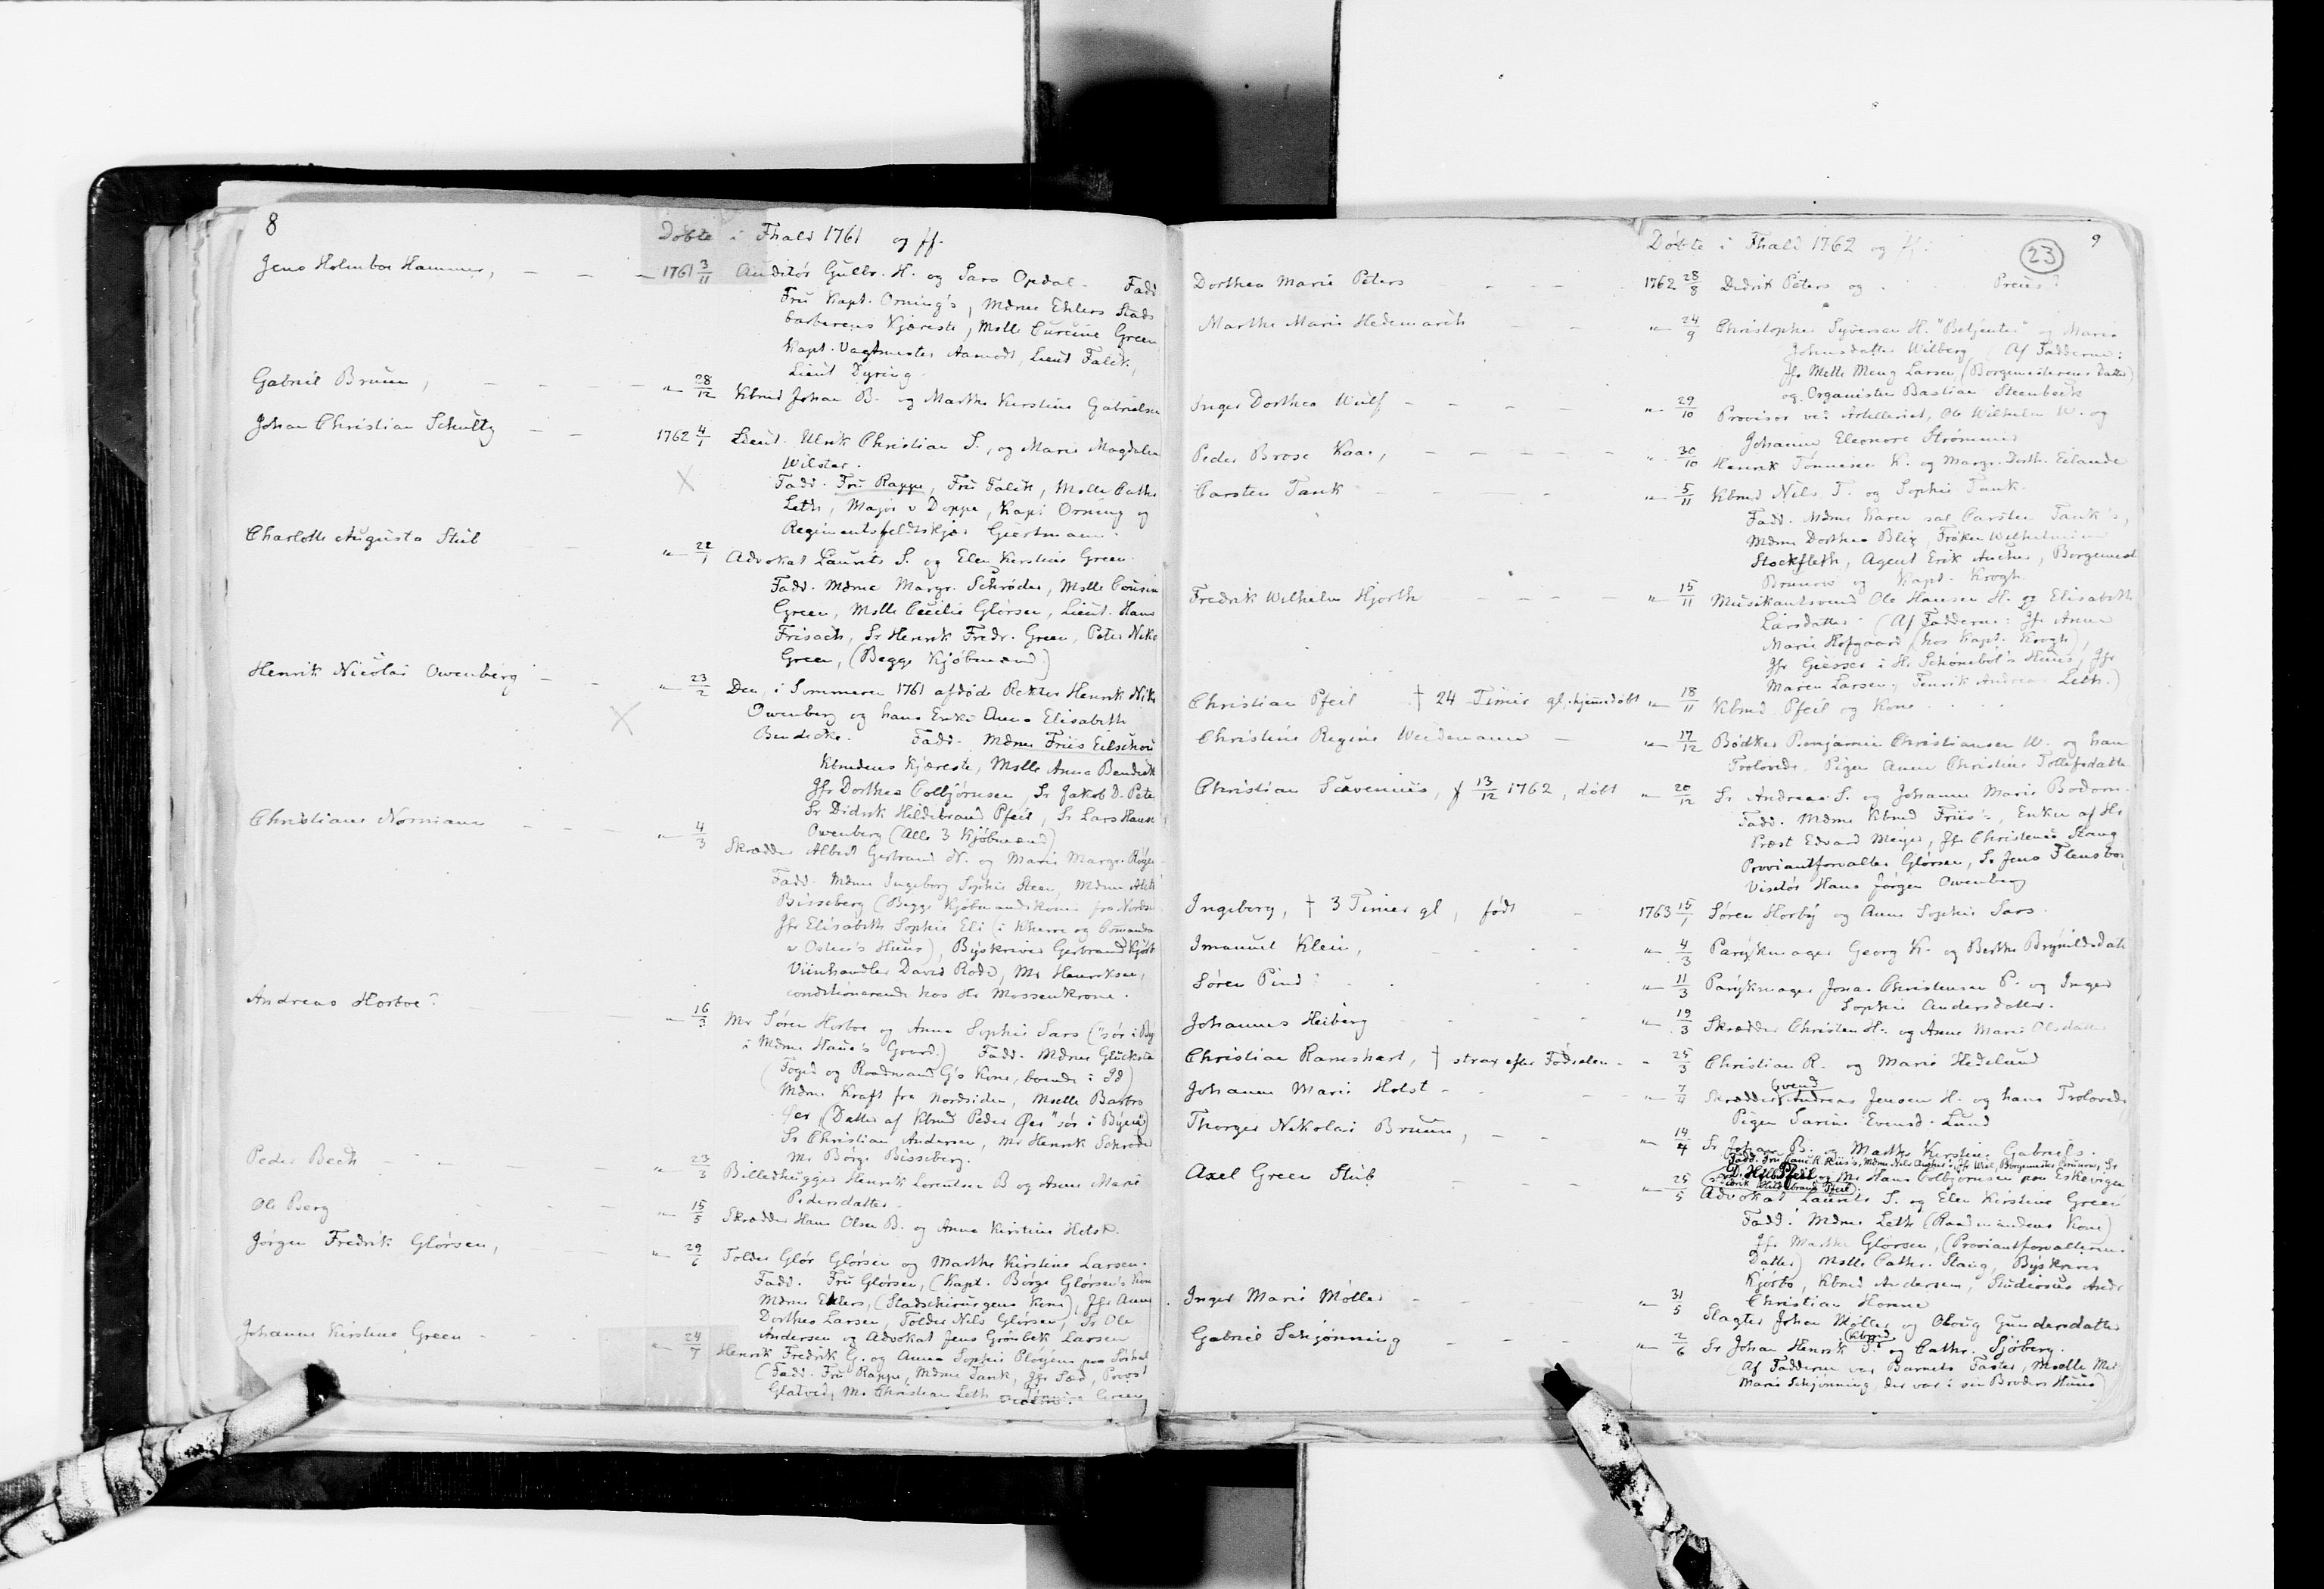 8
Döbte i Fhald 1761 og ff.
Jens Holmboe Hammer, — — — 1761 3/11 Auditör Gulbr. H. og Sara Opdal. Fadd.
Frü Kapt. Orning's, Mdme Ehlers Stads
barberens Kjæreste, Mslle Cürcine Green
Kapt. Vagtmester Aamodt, Lieut Falck,
Lieut Dyring.
Gabriel Brüün, — — — " 28/12 Kbmd Johan B. og Marthe Kirstine Gabrielsen
Johan Christian Schultz — — 1762 4/1 Lieut. Ulrik Christian S., og Marie Magdalen
Wilster.
Fadd. Frü Rappe, Frü Falck, Mslle Cathr
Leth, Major v Deppe, Kapt Orning og
Regimentsfeldtskjær Giertmann.
Charlotte Augusta Stüb " 22/1 Advokat Laurits S. og Elen Kirstine Green.
Fadd. Mdme Margr. Schrøder, Mslle Cousin
Green, Mslle Cecilie Glörsen, Lieut. Hans
Frisach, Sr Henrik Fredr. Green, Peter Niko
Green, (Begge Kjöbmænd)
Henrik Nicolai Owenberg — — " 23/2 Den i Sommeren 1761 afdöde Rektor Henrik Nik
Owenberg og hans Enke Anna Elisabeth
Bendeke. Fadd. Mdme Friis Eilschou
Kbmdens Kjæreste, Mslle Anna Bendek
Jfr Dorthea Colbjörnsen, Sr Jakob D. Peter
Sr Didrik Hildebrand Pfeil, Sr Lars Hansen
Owenberg (Alle 3 Kjöbmænd)
Christiane Normann — — — " 4/3 Skrædder Albert Gerbrand N. og Marie Margr. Röger
Fadd. Mdme Ingeborg Sophie Steen, Mdme Alet
Bisseberg (Begge Kjöbmandskoner fra Nordsi
Jfr Elisabeth Sophie Eli (i Kherre og Comanda
v Osten's Huus), Byskriver Gerbrand Kjört
Viinhandler David Rode, Mr Henriksen,
conditionerende hos Hr Mossenkrone.
Andreas Horboe? — " 16/3 Mr Sören Horboe og Anna Sophie Sars ("sör i By
i Mdme Haue's Gaard.) Fadd. Mdme Glückstad
(Foged og Raadmand G's Kone, boende i Id)
Mdme Kraft fra Nordsiden, Mslle Barbro
Öer, (Datter af Kbmd Peder Öer "sör i Byen")
Sr Christian Andersen, Mr Henrik Schröder
Mr Börge Bisseberg.
Peder Bech — — — " 23/3 Billedhugger Henrik Lorentsen B og Anne Marie
Pedersdatter.
Ole Berg " 15/5 Skrædder Hans Olsen B. og Anna Kirstine Holst.
Jörgen Fredrik Glörsen, — " 29/6 Tolder Glör Glörsen og Marthe Kirstine Larsen.
Fadd. Frü Glörsen, (Kapt. Börge Glörsen's Kone
Mdme Ehlers, (Stadschirurgens Kone), Jfr Anne
Dorthea Larsen, Tolder Nils Glörsen, Sr Ole
Andersen og Advokat Jens Grönbek Larsen
Johanne Kirstine Green — " 24/7 Henrik Fredrik G. og Anna Sophie Plöyen paa
(Fadd. Frü Rappe, Mdme Tank, Jfr Sæd, Provst
Glatved, Mr Christian Leth Green
9
Döbte i Fhald 1762 og ff.
23
Dorthea Marie Peters — — 1762 28/8 Didrik Peters og . . Preus?
Marthe Marie Hedemarck — " 24/9 Christopher Syversen H. "Betjenter" og Maren
Johnsdatter Wilberg (Af Fadderne:
Jfr Mslle Meng Larsen (Borgemesterens Datter)
og Organisten Bastian Steenbeck
Inger Dorthea Wulf — — — — " 29/10 Provisor ved Artilleriet, Ole Wilhelm W. og
Johanne Eleonore Strömmer
Peder Brose Kaas, — — — — — " 30/10 Henrik Tönnesen K. og Margr. Dorth. Eilande
Carsten Tank — — " 5/11 Kbmd Nils T. og Sophie Tank.
Fadd. Mdme Karen sal Carsten Tank's,
Mdme Dorthea Blix, Fröken Wilhelmine
Stockfleth, Agent Erik Ancher, Borgemest
Brunow og Kapt. Krogh.
Fredrik Wilhelm Hjorth — — — — " 15/11 Musikantsvend Ole Hansen H. og Elisabeth
Larsdatter (Af Fadderne: Jfr Anne
Marie Hofgaard (hos Kapt. Krogh),
Jfr Giesser i Hr Schöneböl's Huus, Jfr
Maren Larsen, Fenrik Andreas Leth.)
Christian Pfeil † 24 Timer gl, hjemmedöbt " 18/11 Kbmd Pfeil og Kone . .
Christine Regine Weidemann — " 17/12 Bödker Benjamin Christiansen W. og hans
Trolovede, Pigen Anne Christine Tollefsdatter
Christian Scavenius, f 13/12 1762, döbt " 20/12 Sr Andreas S. og Johanne Marie Bodom.
Fadd. Mdme Kbmd Friis's, Enken af Hr
Præst Edvard Meyer, Jfr Christence Stang
Proviantforvalter Glörsen, Sr Jens Flensbor
Visitör Hans Jörgen Owenberg
Ingeborg, † 3 Timer gl, födt — 1763 15/1 Sören Horby og Anne Sophie Sars.
Imanuel Klein, " 4/3 Parykmager Georg K. og Berthe Brynildsdatt
Sören Pind " 11/3 Parykmager Jonas Christensen P. og Inger
Sophie Andersdatter.
Johannes Heiberg " 19/3 Skrædder Christen H. og Anne Marie Olsdatter
Christian Rameshart, † strax efter Födselen. " 25/3 Christian R. og Marie Hedelund
Johanne Marie Holst — " 7/4 Skrædder svend Andreas Jensen H. og hans Trolovede
Pigen Sarine Evensd. Lund
Thorger Nikolai Bruun, — — " 14/4 Sr Johan B. og Marthe Kirstine Gabriels.
Fadd. Frü Riis's, Mdme Nils Anchers, Jfr Wiel, Borgemester Brunow, Sr
D. Hildebrand Pfeil og Mr Hans Colbjörnsen paa Eskevigen
Axel Green Stüb — — " 25/5 Advokat Laurits S. og Elen Kirstine Green
Fadd. Mdme Leth (Raadmandens Kone)
Jfr Marthe Glörsen, (Proviantforvalterens
Datter) Mslle Cathr. Stang, Byskriver
Kjörbo, Kbmd Andersen, Studiosus Andr
Christian Honne
Inger Marie Möller — " 31/5 Slagter Johan Möller og Oloug Gundersdatter
Gabriel Schjønning — — — " 2/6 Sr Johan Henrik S. (Kbmd) og Cathr. Sjöberg.
(Af Fadderne var Barnets Faster, Mselle Met
Marie Schjønning, der var i sin Broders Huus)